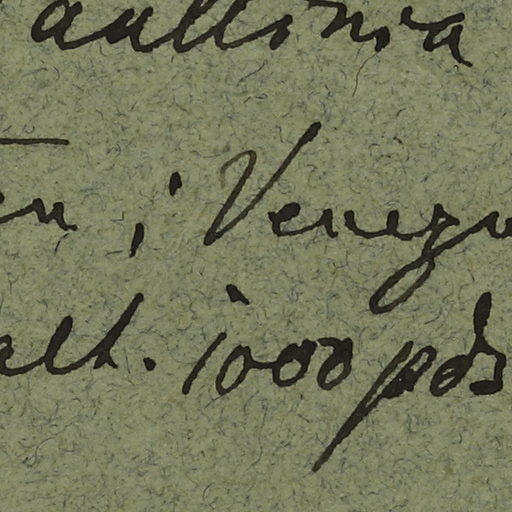 aullinia
en ; Venezu
alt. 1000 pds